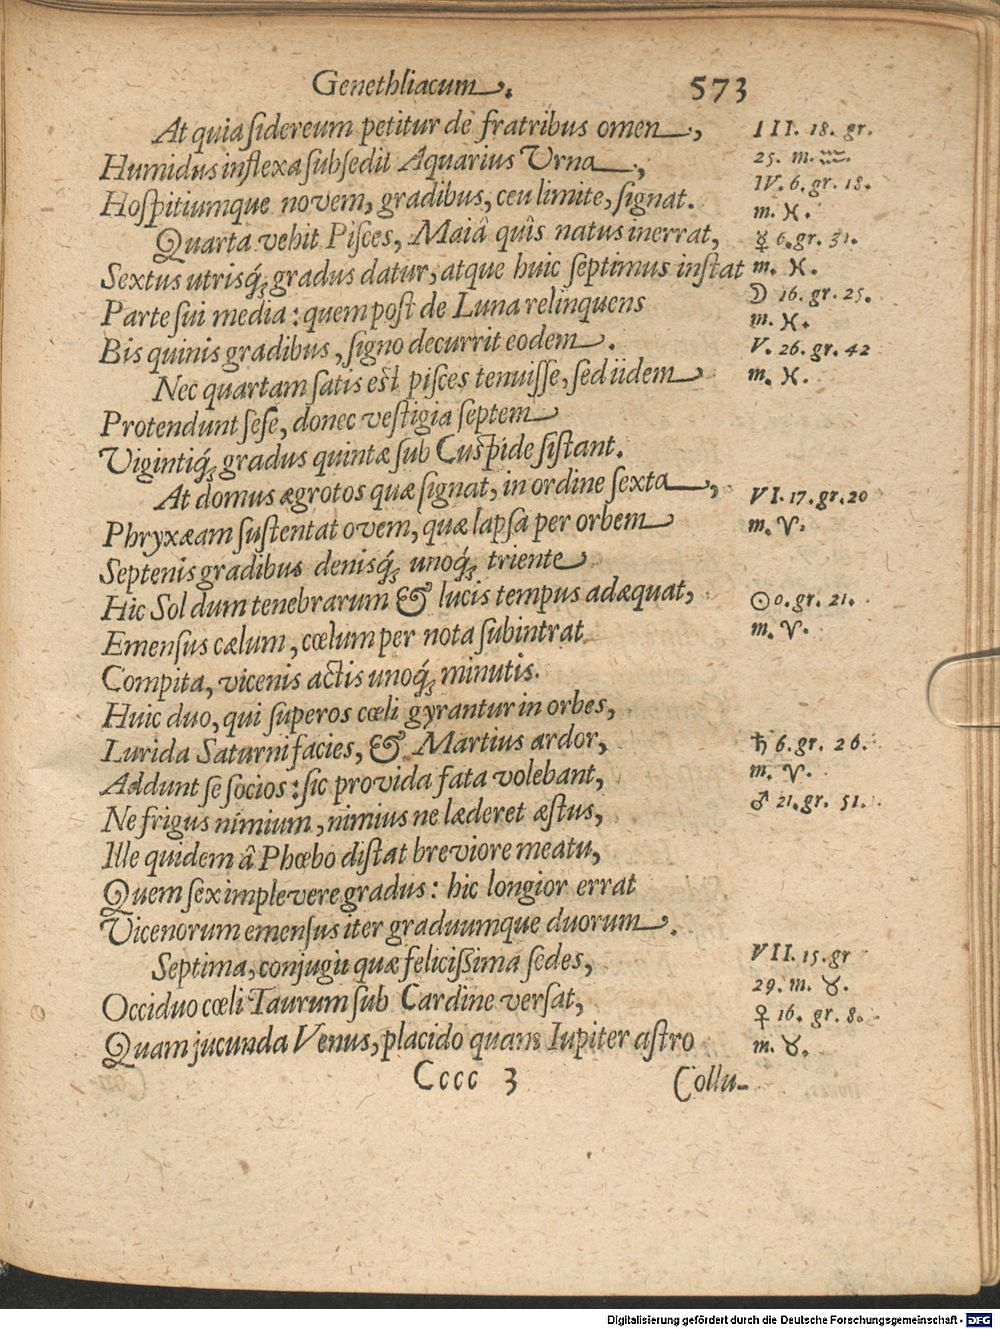 Genethliacum. 573
At quia sidereum petitur de fratribus omen,
Humidus inflexa subsedit Aquarius Vrna,
Hospitiumque novem, gradibus, ceu limite, signat.
Quarta vehit Pisces, Maiâ quîs natus inerrat,
Sextus utrisq́; gradus datur, atque huic septimus instat
Parte sui media: quem post de Luna relinquens
Bis quinis gradibus, signo decurrit eodem.
Nec quartam satis est pisces tenuisse, sed iidem
Protendunt sese, donec vestigia septem
Vigintiq́; gradus quintæ sub Cuspide sistant.
At domus ægrotos quæ signat, in ordine sexta,
Phryxæam sustentat ovem, quæ lapsa per orbem
Septenis gradibus denisq́; unoq́; triente
Hic Sol dum tenebrarum & lucis tempus adæquat,
Emensus cælum, cœlum per nota subintrat
Compita, vicenis actis unoq́; minutis.
Huic duo, qui superos cœli gyrantur in orbes,
Lurida Saturni facies, & Martius ardor,
Addunt se socios: sic provida fata volebant,
Ne frigus nimium, nimius ne læderet æstus,
Ille quidem â Phœbo distat breviore meatu,
Quem sex implevere gradus: hic longior errat
Vicenorum emensus iter graduumque duorum.
Septima, conjugii quæ felicissima sedes,
Occiduo cœli Taurum sub Cardine versat,
Quam jucunda Venus, placido quam Iupiter astro
Cccc 3 Collu-
III. 18. gr.
25. m. ♒.
IV. 6. gr. 18.
m. ♓.
☿ 6. gr. 31.
m. ♓.
☽ 16. gr. 25.
m. ♓.
V. 26. gr. 42
m. ♓.
VI. 17. gr. 20
m. ♈.
☉ 0. gr. 21.
m. ♈.
♄ 6. gr. 26.
m. ♈.
♂ 21. gr. 51.
VII. 15. gr
29. m. ♉.
♀ 16. gr. 8.
m. ♉.
Digitalisierung gefördert durch die Deutsche Forschungsgemeinschaft - DFG